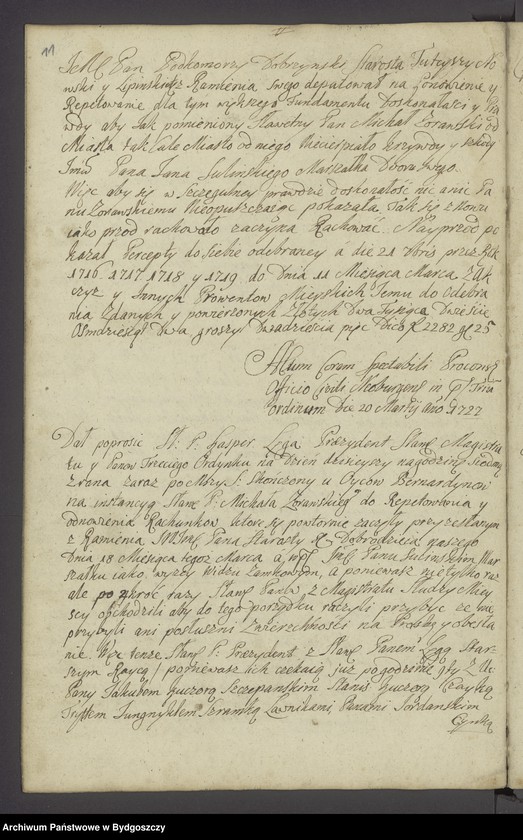 11
JeMć Pan Podkomorzy Dobrzynski Starosta Tuteyszy No
wski y Lipinski z Ramienia swego deputował na Ponowienie y
Repetowanie dla tym większego Fundamentu doskonałosci y Pra
wdy aby tak pomieniony Sławetny Pan Michał Zorawski od
Miasta tak całe Miasto od niego niecierpiało krzywdy y szkody
Imć Pana Jana Sulinskiego Marszałka Dworu swego.
Więc aby się w szczegulney prawdzie doskonałość nic a nic Pa
nu Zorawskiemu nieopuszczaiąc pokazała, tak się z Nowu
iako przod rachowało zaczyna Rachować. Nayprzod po
kazał Percepty do siebie odebraney a die 21 bris przez Rok
1716. 1717. 1718 y 1719 do Dnia 11 Miesiąca Marca z Ak
czyz y Innych Prowentow Mieyskich Temu do odebra
nia zdanych y powierzonych Złotych Dwa Tysiąca Dwiescie
Osmdziesiąt Dwa groszy Dwadziescia pięć Dico 2282 gr 25
Actum Coram Spectabili Proconsᵗⁱ
Officio Civili Neoburgensi in Trium
ordinum Die 20 Martij Ano 1727
Dał poprosic Sł: P. Kasper Łęga Prezydent Sławᵉ Magistra
tu y Panow Trzeciego Ordynku na Dzien dzisieyszy nagodzinę siodmą
z rana zaraz po Mszy S. skonczoney u Oycow Bernardynow
na instancyą Sławᵉ P: Michała Zorawskieᵍᵒ do Repetowania y
odnowienia Rachunkow ktore się powtornie zaczeły przy zesłanym
z Ramienia Pana Starosty Dobrodzieia naszego
Dnia 18 Miesiąca tegoz Marca a Panu Sulinskim Mar
szałku iako wyzey widzu Zamkowym, a poniewaz nietylko raz
ale po kroć razy Sławᵉ Panow z Magistratu Słudzy Miey
scy obchodzili aby do tego porządku raczyli przybyć ze nie
przybyli ani posłuszni Zwierzchnosci na Prozby y obesła
nie. Więc tenze Sławᵉ P: Prezydent z Sławᵉ Panem Łęgą Star-
szym Raycą poniewaz ich czekaią juz po godzinie 9tey z U
Pany Jakubem Szczepanskim Stanis
Jungnyklem Szramką Ławnikami, Panami Jordanskim
Cynką
Archiwum Państwowe w Bydgoszczy